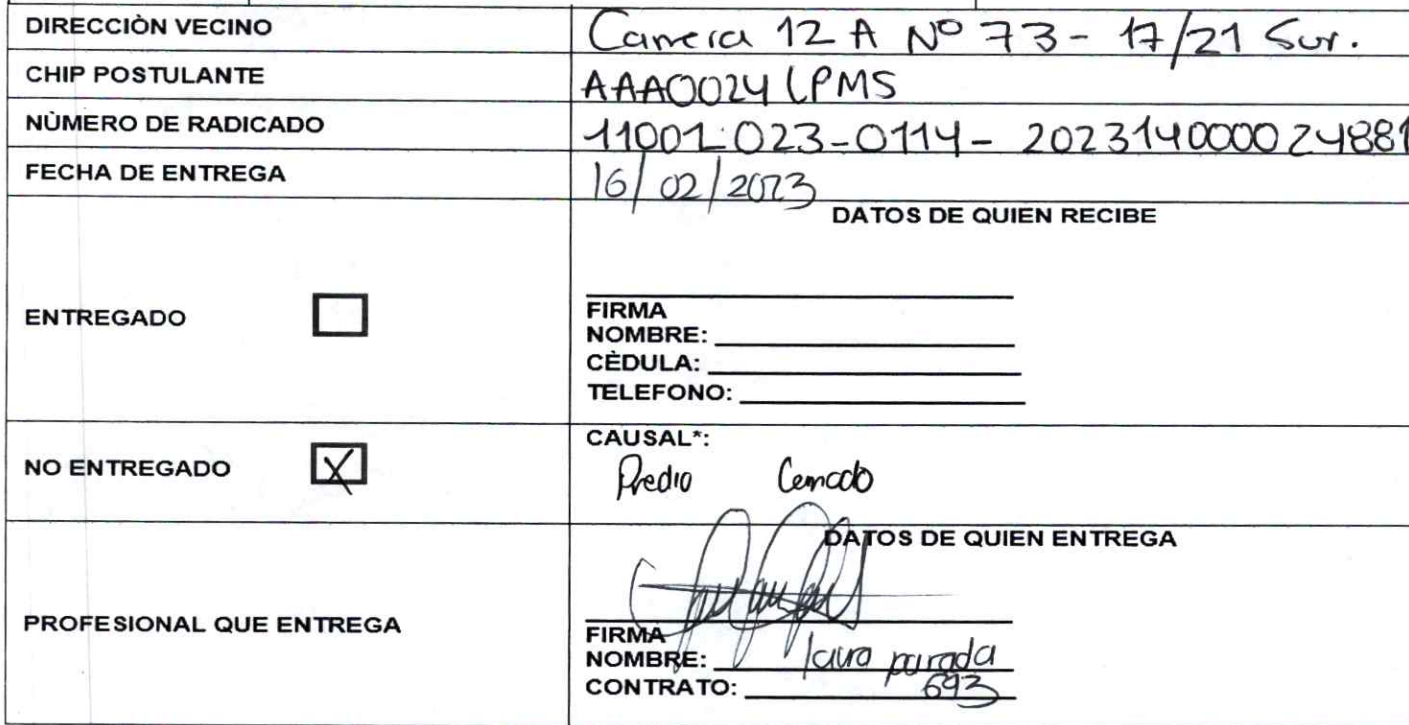 DIRECCIÒN VECINO Carrera 12 A Nº 73 - 17/21 Sur.
CHIP POSTULANTE AAA0024LPMS
NÙMERO DE RADICADO 11001-023-0114- 202314000024881
FECHA DE ENTREGA 16/02/2023
DATOS DE QUIEN RECIBE
ENTREGADO
FIRMA
NOMBRE:
CÈDULA:
TELEFONO:
CAUSAL*:
NO ENTREGADO X Predio Cerrado
DATOS DE QUIEN ENTREGA
PROFESIONAL QUE ENTREGA
FIRMA
NOMBRE: laura parada
CONTRATO: 693